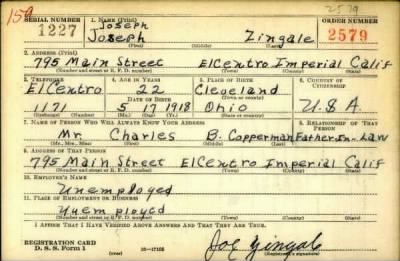 159
2579
SERIAL NUMBER 1. NAME (Print) ORDER NUMBER
Joseph
1227 Joseph Zingale 2579
(First) (Middle) (Last)
2. ADDRESS (Print)
795 Main Street ElCentro Imperial Calif
(Number and street or R. F. D. number) (Town) (County) (State)
3. TELEPHONE 4. AGE IN YEARS 5. PLACE OF BIRTH 6. COUNTRY OF CITIZENSHIP
ElCentro 22 Cleveland
DATE OF BIRTH (Town or county)
1171 5 17 1918 Ohio U.S.A.
(Exchange) (Number) (Mo.) (Day) (Yr.) (State or country)
7. NAME OF PERSON WHO WILL ALWAYS KNOW YOUR ADDRESS 8. RELATIONSHIP OF THAT PERSON
Mr. Charles B. Copperman Father-In-Law
(Mr., Mrs., Miss) (First) (Middle) (Last)
9. ADDRESS OF THAT PERSON
795 Main Street ElCentro Imperial Calif
(Number and street or R. F. D. number) (Town) (County) (State)
10. EMPLOYER'S NAME
Unemployed
11. PLACE OF EMPLOYMENT OR BUSINESS
Unemployed
(Number and street or R. F. D. number) (Town) (County) (State)
I AFFIRM THAT I HAVE VERIFIED ABOVE ANSWERS AND THAT THEY ARE TRUE.
REGISTRATION CARD
D. S. S. Form 1 16-17105 Joe Zingale
(Registrant's signature)